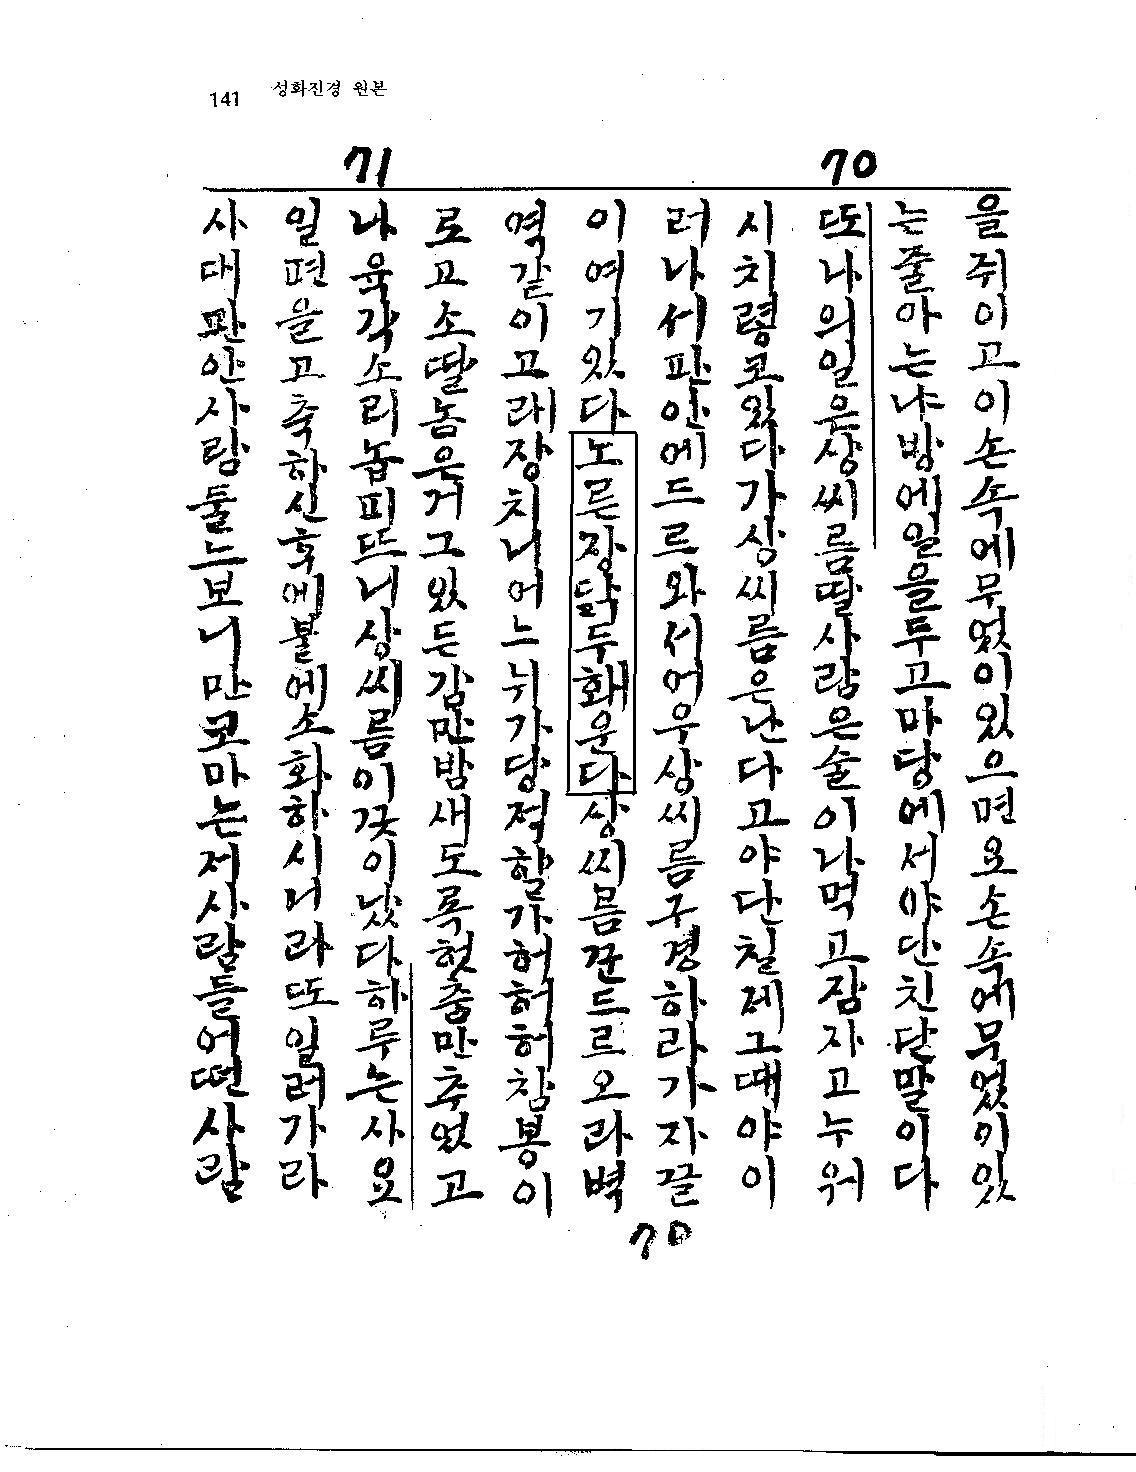 141 성화진경 원본
70
71
을쥐이고이손속에무엇이있으면요손속에무엇이있
는줄아는냐방에일을두고마당에서야단친단말이다
또나의일은상씨름딸사람은술이나먹고잠자고누워
시치령코있다가상씨름은난다고야단칠제그때야이
러나서판안에드르와서어우상씨름구경하라가자끌
이여기있다노른장닭두홰운다상씨름꾼드르오라벽
역같이고래장치니어느뉘가당적할가허허허참봉이
로고소딸놈은거그있든감만밤새도록헛춤만추었고
나육각소리놉피뜨니상씨름이끗이났다하루는사요
일편을고축하신후에불에소화하시니라또일러가라
사대판안사람둘느보니만코마는저사람들어떤사람
70